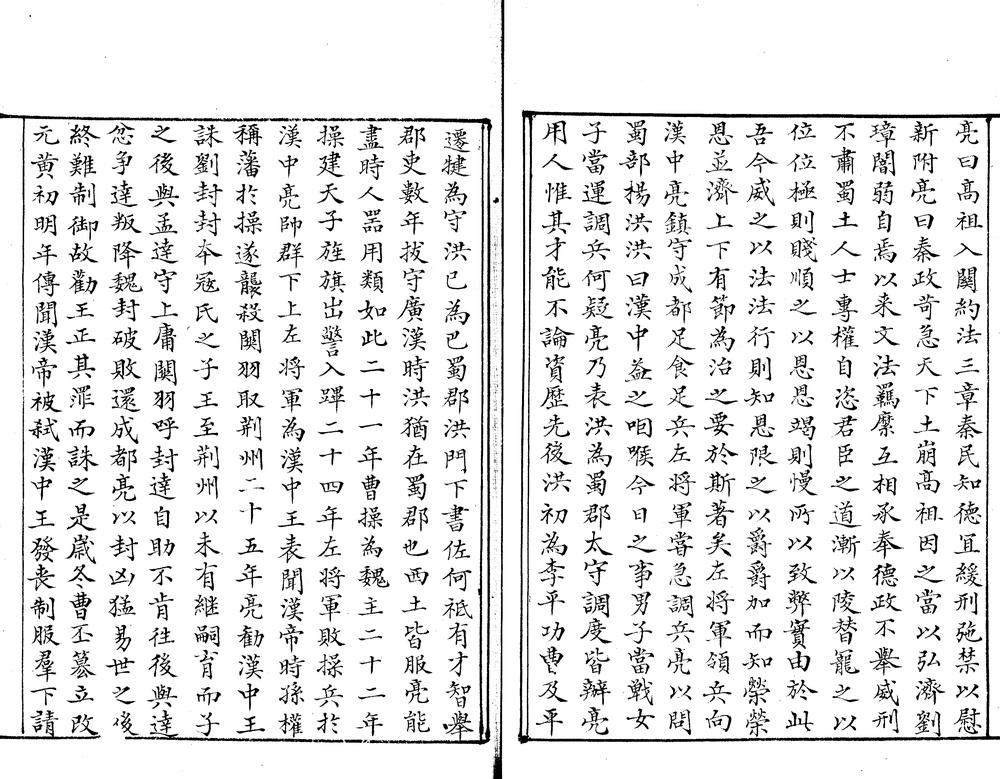 亮曰高祖入關約法三章秦民知德宜緩刑弛禁以慰
新附亮曰秦政苛急天下土崩高祖因之當以弘濟劉
璋闇弱自焉以来文法羈縻互相承奉德政不舉威刑
不肅蜀土人士專權自恣君臣之道漸以陵替寵之以
位位極則賤順之以恩恩竭則慢所以致弊實由於此
吾今威之以法法行則知恩限之以爵爵加而知榮榮
恩並濟上下有節為治之要於斯著矣左將軍領兵向
漢中亮鎮守成都足食足兵左將軍嘗急調兵亮以問
蜀部楊洪洪曰漢中益之咽喉今日之事男子當戰女
子當運調兵何疑亮乃表洪為蜀郡太守調度皆辦亮
用人惟其才能不論資歷先後洪初為李平功曹及平
遷犍為守洪已為巴蜀郡洪門下書佐何祗有才智舉
郡吏數年拔守廣漢時洪猶在蜀郡也西土皆服亮能
盡時人器用類如此二十一年曹操為魏主二十二年
操建天子旌旗出警入蹕二十四年左將軍敗操兵於
漢中亮帥群下上左將軍為漢中王表聞漢帝時孫權
稱藩於操遂襲殺關羽取荆州二十五年亮勸漢中王
誅劉封封本冦氏之子王至荆州以未有継嗣育而子
之後與孟達守上庸關羽呼封達自助不肯往後與達
忿争達叛降魏封破敗還成都亮以封凶猛易世之後
終難制御故勸王正其罪而誅之是歲冬曹丕簒立改
元黄初明年傳聞漢帝被弑漢中王發丧制服羣下請